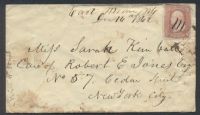 Dec 14th
Miss Sarah Kimball
Care of Robert E Jones Esq
No 57 Cedar Street
New York City